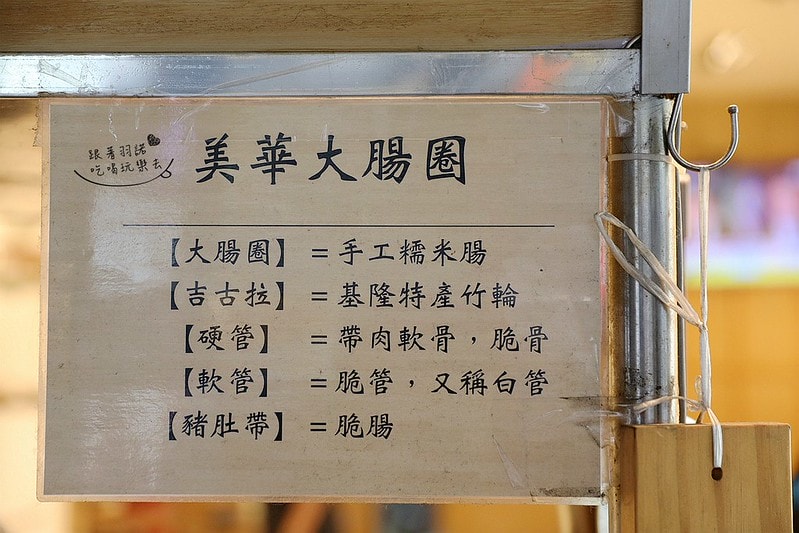 跟著羽諾
吃喝玩樂去
美華大腸圈
【大腸圈】=手工糯米腸
【吉古拉】=基隆特產竹輪
【硬管】=帶肉軟骨，脆骨
【軟管】=脆管，又稱白管
【豬肚帶】=脆腸